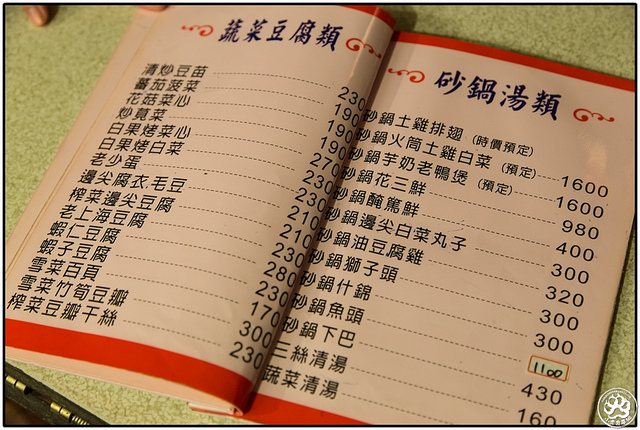 蔬菜豆腐類
清炒豆苗 230
蕃茄菠菜 190
花菇菜心 190
炒莧菜 190
白果烤菜心 270
白果烤白菜 230
老少蛋 230
邊尖腐衣.毛豆 210
榨菜邊尖豆腐 210
老上海豆腐 230
蝦仁豆腐 280
蝦子豆腐 230
雪菜百頁 170
雪菜竹筍豆瓣 300
榨菜豆瓣干絲 230
砂鍋湯類
砂鍋土雞排翅 (時價預定)
砂鍋火筒土雞白菜 (預定) 1600
砂鍋羊奶老鴨煲 (預定) 1600
砂鍋花三鮮 980
砂鍋醃篤鮮 400
砂鍋邊尖白菜丸子 300
砂鍋油豆腐雞 320
砂鍋獅子頭 300
砂鍋什錦 300
砂鍋魚頭 1100
砂鍋下巴 430
三絲清湯 160
蔬菜清湯